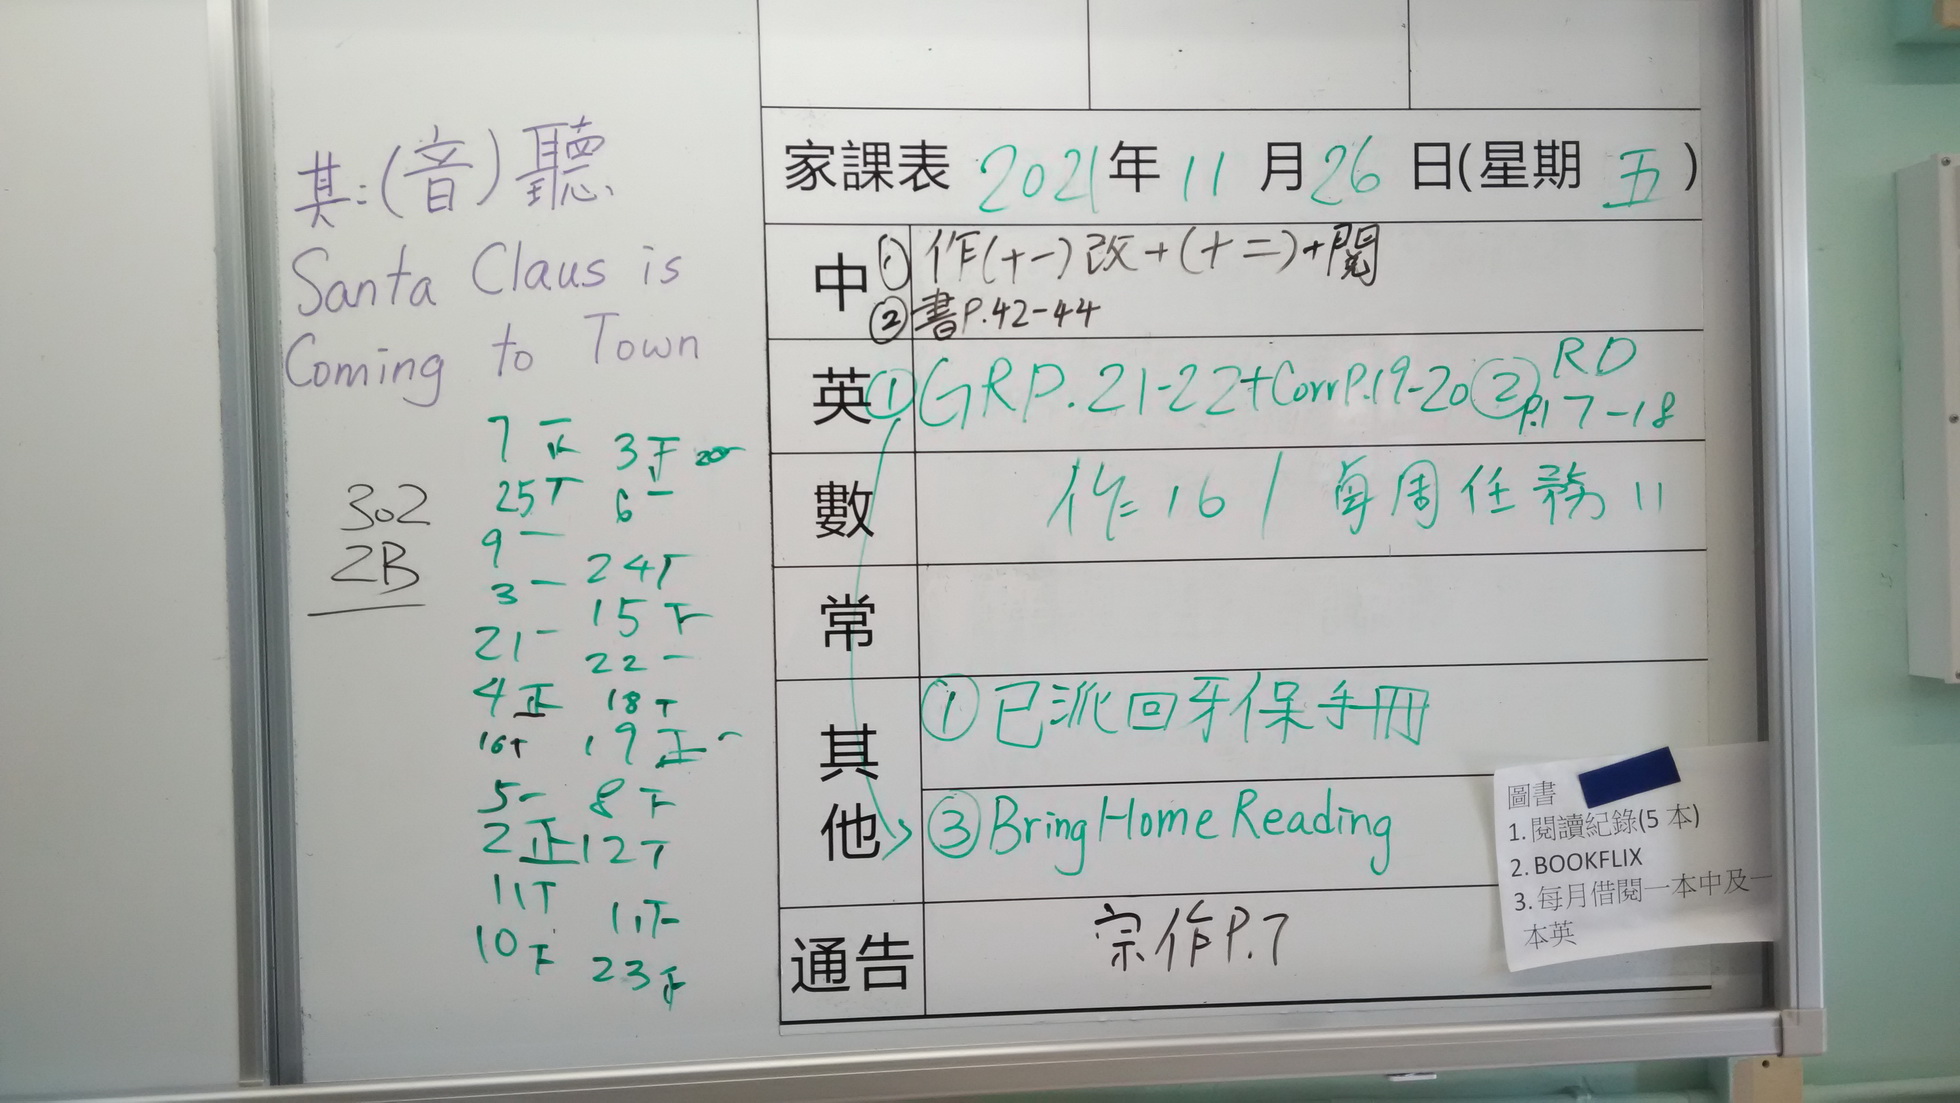 其:(音)聽
Santa Claus is
Coming to Town
302
2B
7 正
25 T
9 一
3 一
21 一
4 正
16 T
5 一
2 正
11 T
10 下
3
6 一
24 T
15 下
22 一
18 T
19 正一
8 下
12 T
23
家課表 2021年 11 月 26 日(星期 五)
中 ① 作(十一)改+(十二)+閱
② 書P.42-44
英 ① GRP.21-22+Corr P.19-20 ② RD
P.17-18
數 作=16 / 每周任務11
常
其他 ① 已派回牙保手冊
③ Bring Home Reading
通告 宗作P.7
圖書
1. 閱讀紀錄(5 本)
2. BOOKFLIX
3. 每月借閱一本中及一
本英